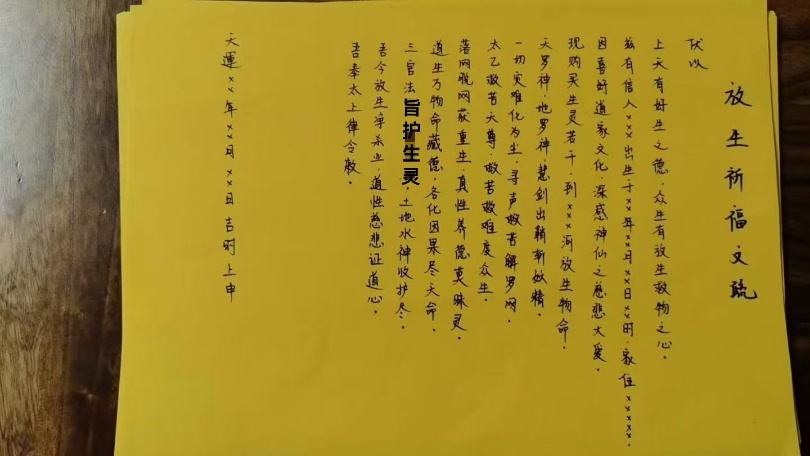 放生祈福文疏
伏以
上天有好生之德，众生有放生救物之心。
兹有信人×××出生于××年××月××日×时，家住×××××。
因喜好道家文化，深感神仙之慈悲大爱。
现购买生灵若干，到×××河放生物命。
天罗神，地罗神，慧剑出鞘斩妖精。
一切灾难化为尘，寻声救苦解罗网。
太乙救苦天尊，救苦救难度众生。
落网脱网获重生，真性养德莫昧灵。
道生万物命藏德，各化因果尽天命。
三官法旨护生灵，土地水神收护尽。
吾今放生净杀业，道性慈悲证道心。
吾奉太上律令敕。
天運××年××月××日吉时上申